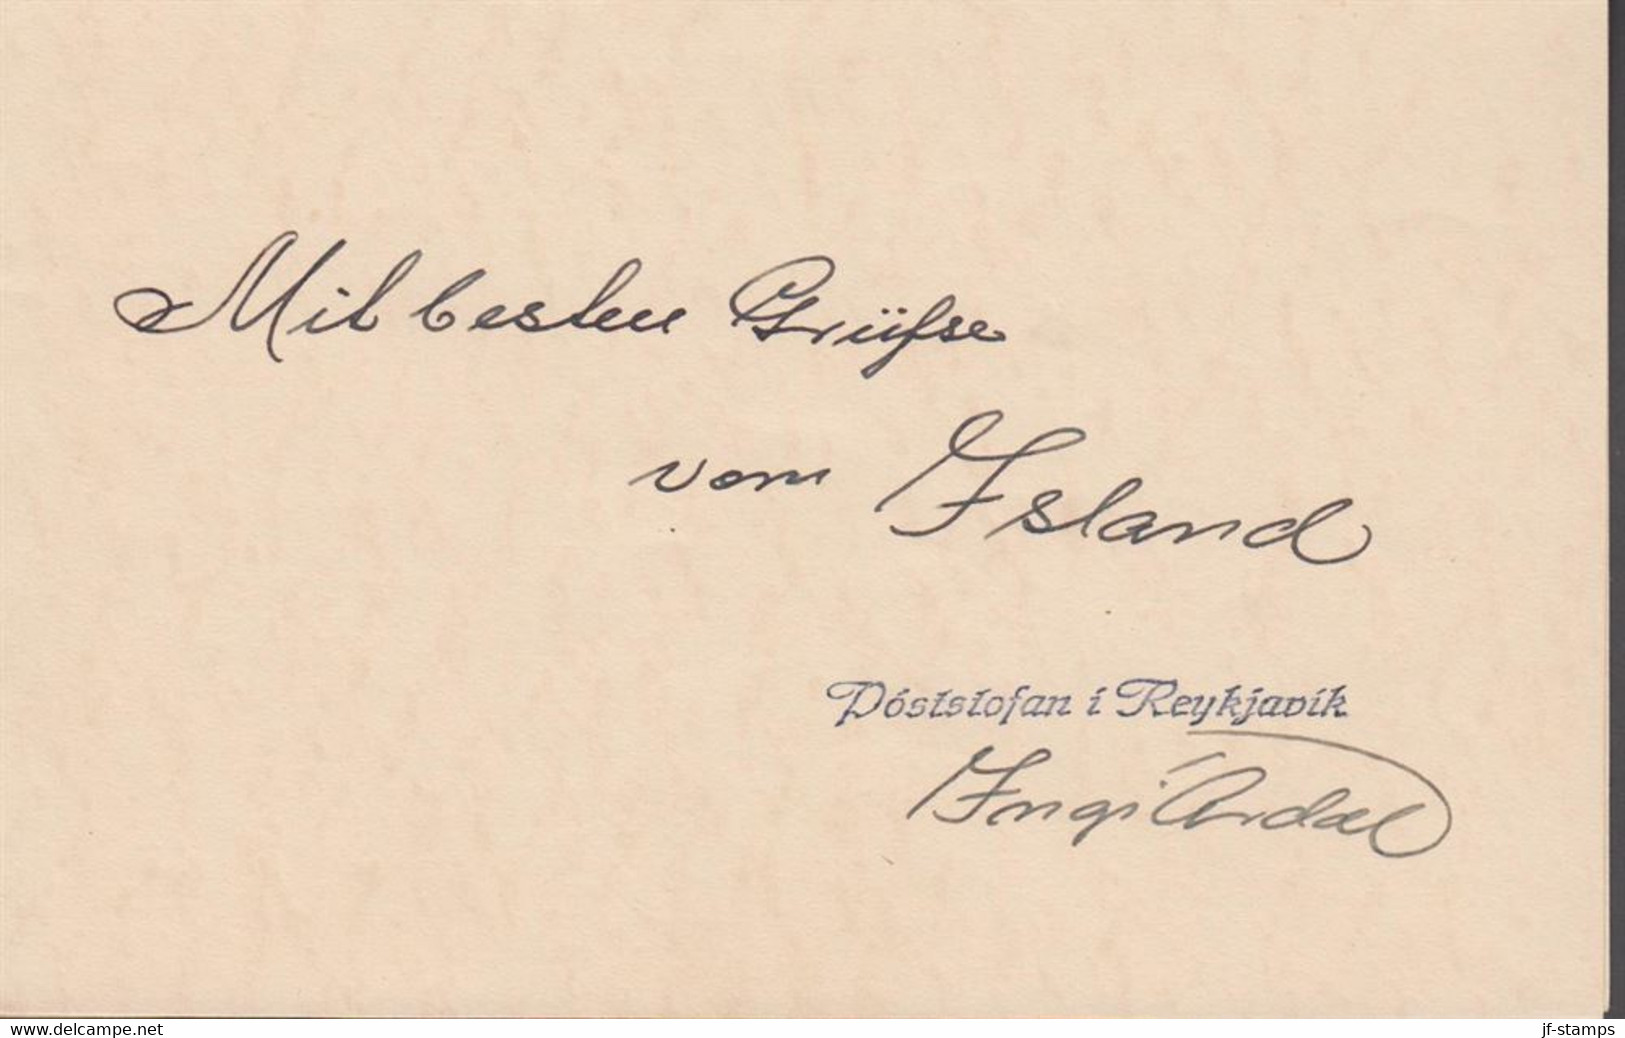 Mit besten Grüsse
von Island
Póststofan í Reykjavík
Ingi Árdal
www.delcampe.net
jf-stamps